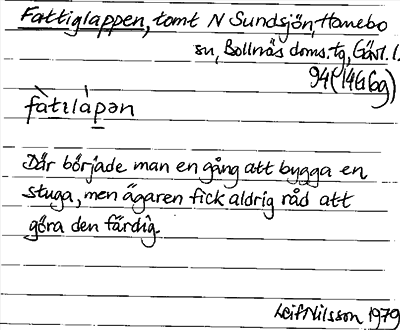 Fattiglappen, tomt N Sundsjön, Hanebo
sn, Bollnäs doms.tg, Gävl. l.
94 (14G 6g)
fàtılápən
Där började man en gång att bygga en
stuga, men ägaren fick aldrig råd att
göra den färdig.
Leif Nilsson 1979